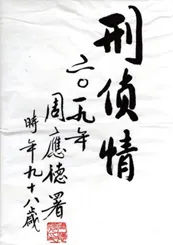 刑侦情
二〇一九年
周應德署
時年九十八歲